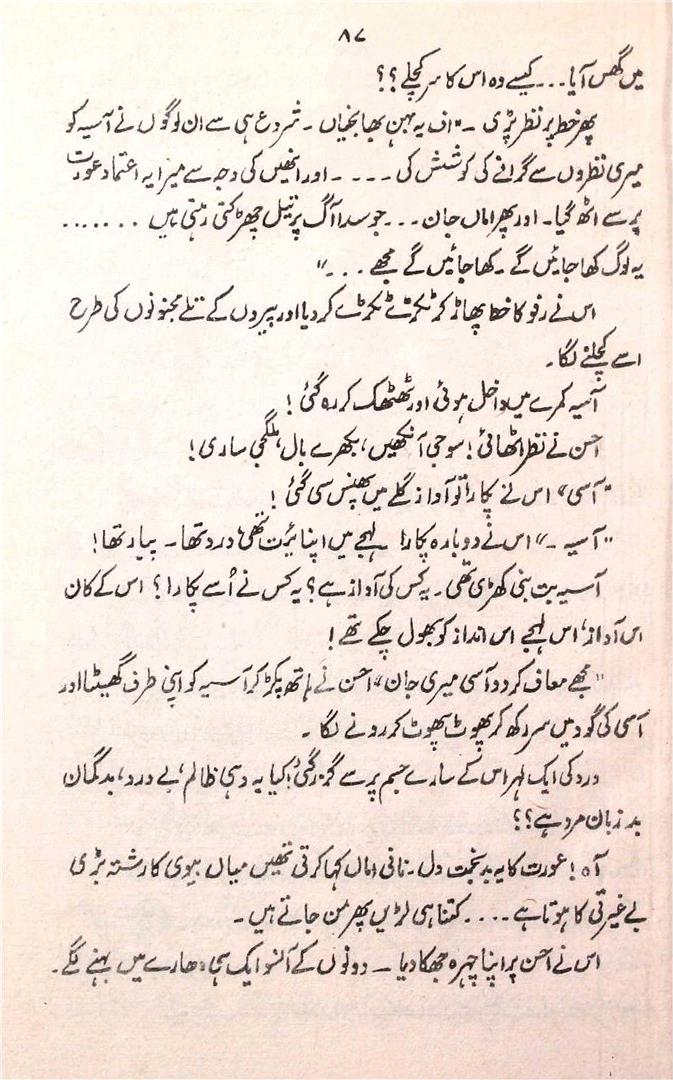 ۸۷
میں گھس آیا۔۔۔ کیسے وہ اس کا سر کچلے؟؟
پھر خط پر نظر پڑی ۔ "اف یہ بہن بھابھیاں ۔ شروع ہی سے ان لوگوں نے آسیہ کو
میری نظروں سے گرانے کی کوشش کی ۔۔۔۔ اور انھیں کی وجہ سے میرا یہ اعتماد عورت
پر سے اٹھ گیا۔ اور پھر اماں جان ۔۔۔ جو سدا آگ پر تیل چھڑکتی رہتی ہیں ۔۔۔۔۔۔۔
یہ لوگ کھا جائیں گے ۔ کھا جائیں گے مجھے ۔۔۔"
اس نے رفو کا خط پھاڑ کر ٹکڑے ٹکڑے کر دیا اور پیروں کے تلے مجنونوں کی طرح
اسے کچلنے لگا۔
آسیہ کمرے میں داخل ہوئی اور ٹھٹھک کر رہ گئی!
احسن نے نظر اٹھائی! سوجی آنکھیں، بکھرے بال، ملگجی ساری!
"آسی" اس نے پکارا تو آواز گلے میں پھنس سی گئی!
"آسیہ ۔" اس نے دوبارہ پکارا لہجے میں اپنائیت تھی درد تھا۔ پیار تھا!
آسیہ بت بنی کھڑی تھی ۔ یہ کس کی آواز ہے؟ یہ کس نے اُسے پکارا؟ اس کے کان
اس آواز، اس لہجے اس انداز کو بھول چکے تھے!
"مجھے معاف کر دو آسی میری جان" احسن نے ہاتھ پکڑ کر آسیہ کو اپنی طرف گھسیٹا اور
آسی کی گود میں سر رکھ کر پھوٹ پھوٹ کر رونے لگا ۔
درد کی ایک لہر اس کے سارے جسم پر سے گزر گئی! کیا یہ وہی ظالم، بے درد، بدگمان
بد زبان مرد ہے؟؟
آہ! عورت کا یہ بدبخت دل ۔ نانی اماں کہا کرتی تھیں میاں بیوی کا رشتہ بڑی
بے غیرتی کا ہوتا ہے ۔۔۔۔ کتنا ہی لڑیں پھر من جاتے ہیں ۔
اس نے احسن پر اپنا چہرہ جھکا دیا ۔ دونوں کے آنسو ایک ہی دھارے میں بہنے لگے ۔